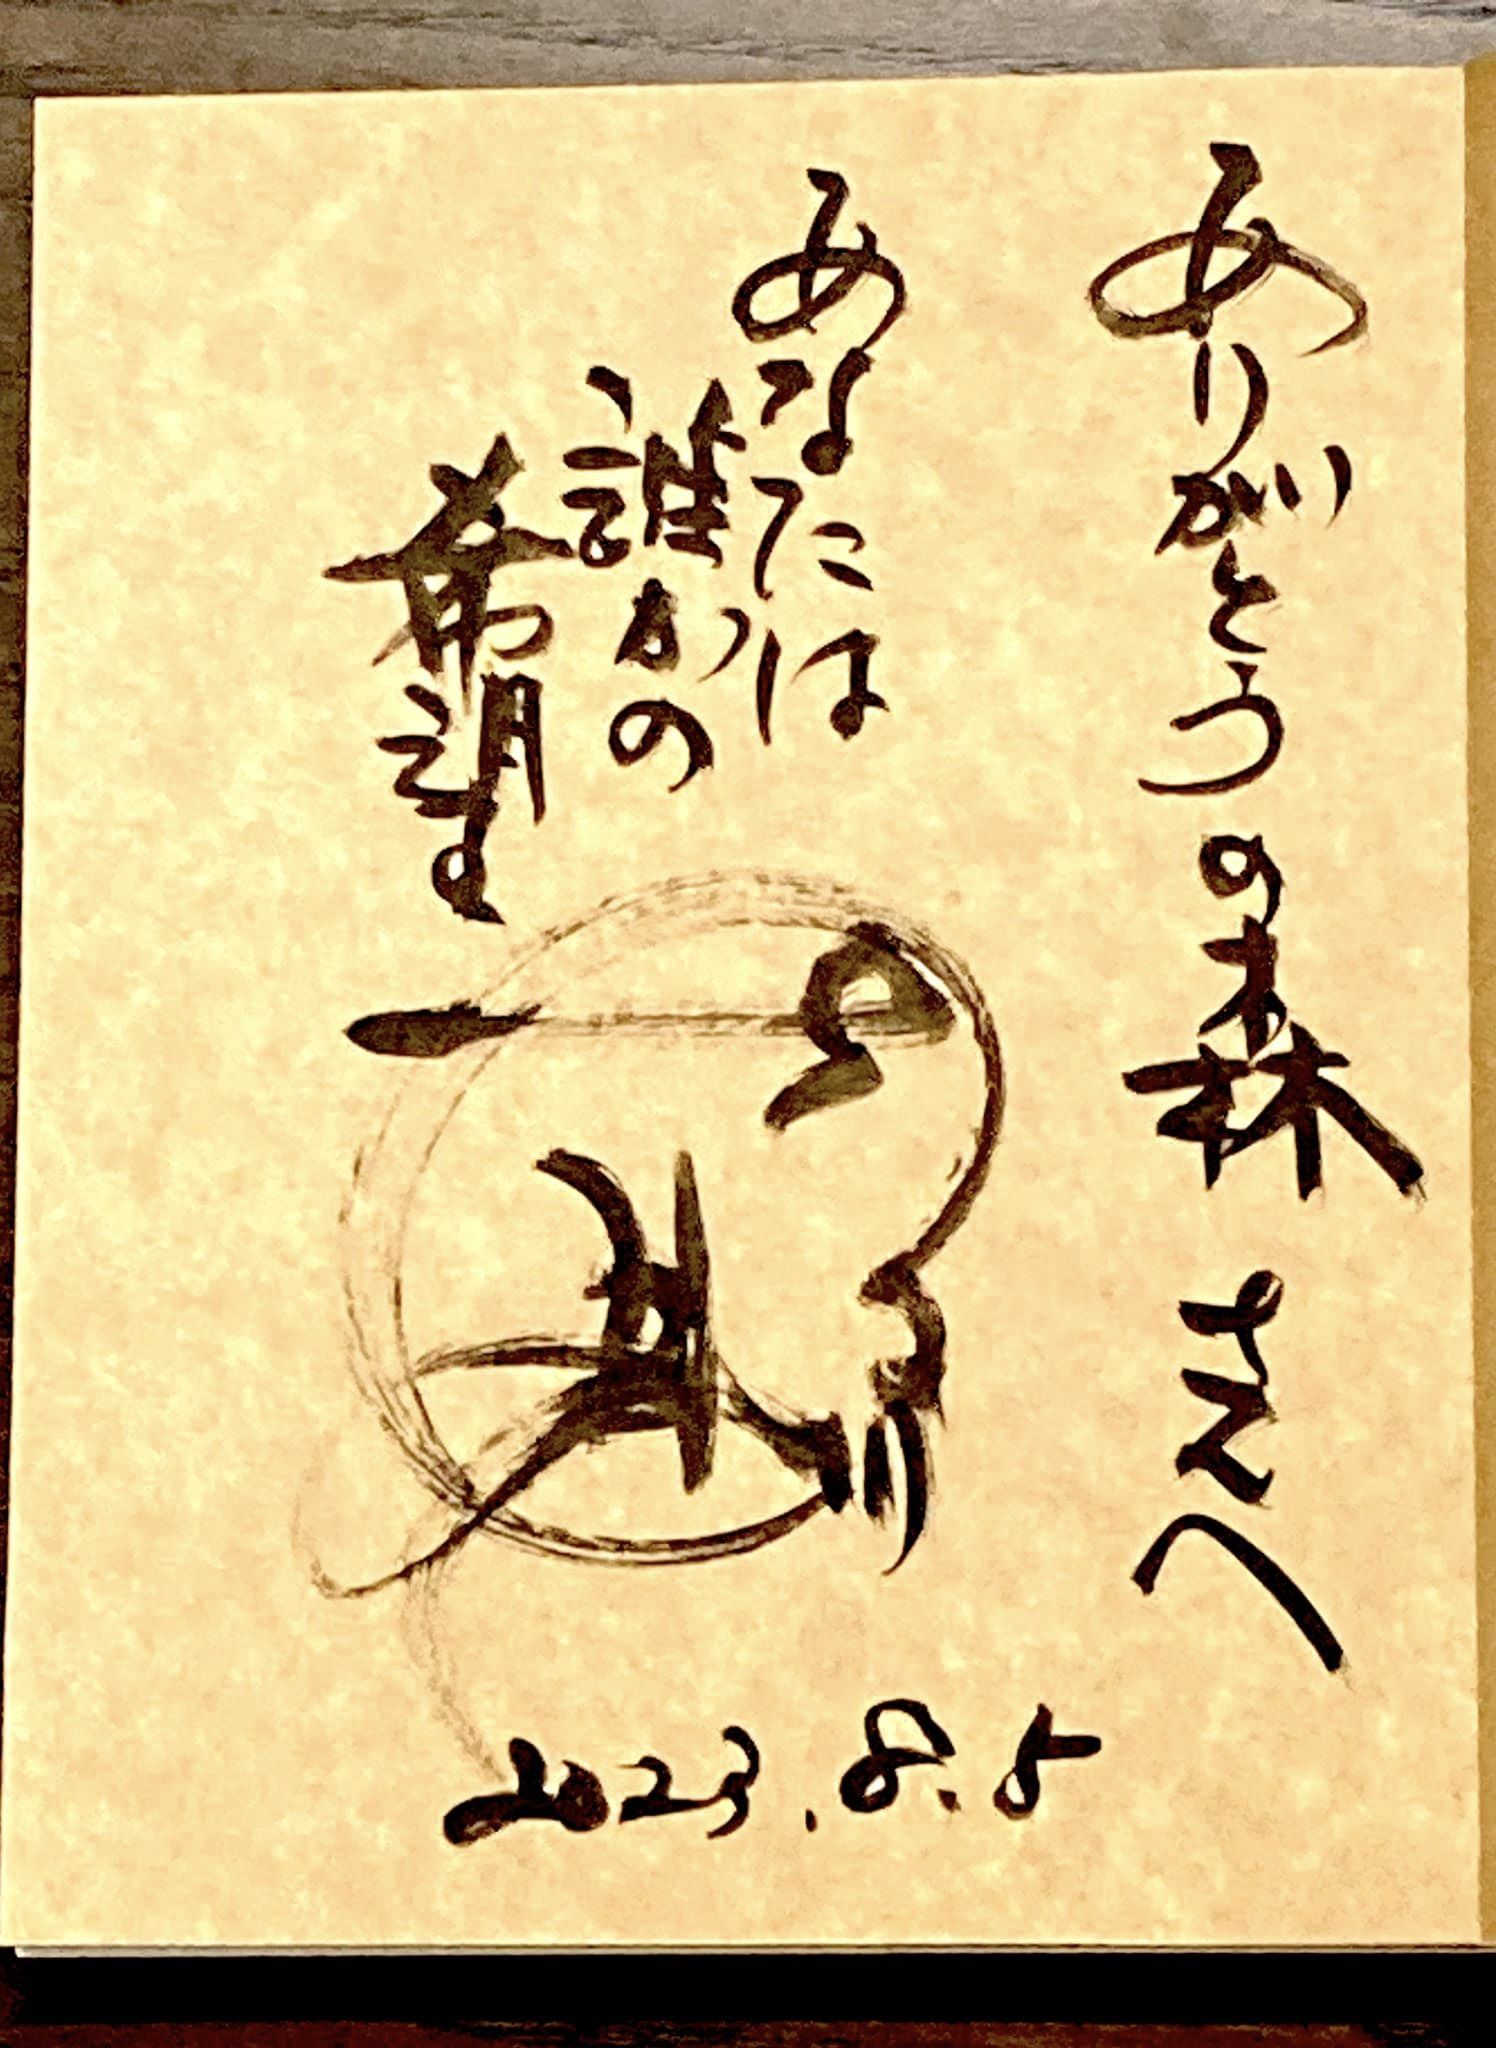 ありがとうの森さんへ
あなたは
誰かの
希望
2023.8.5